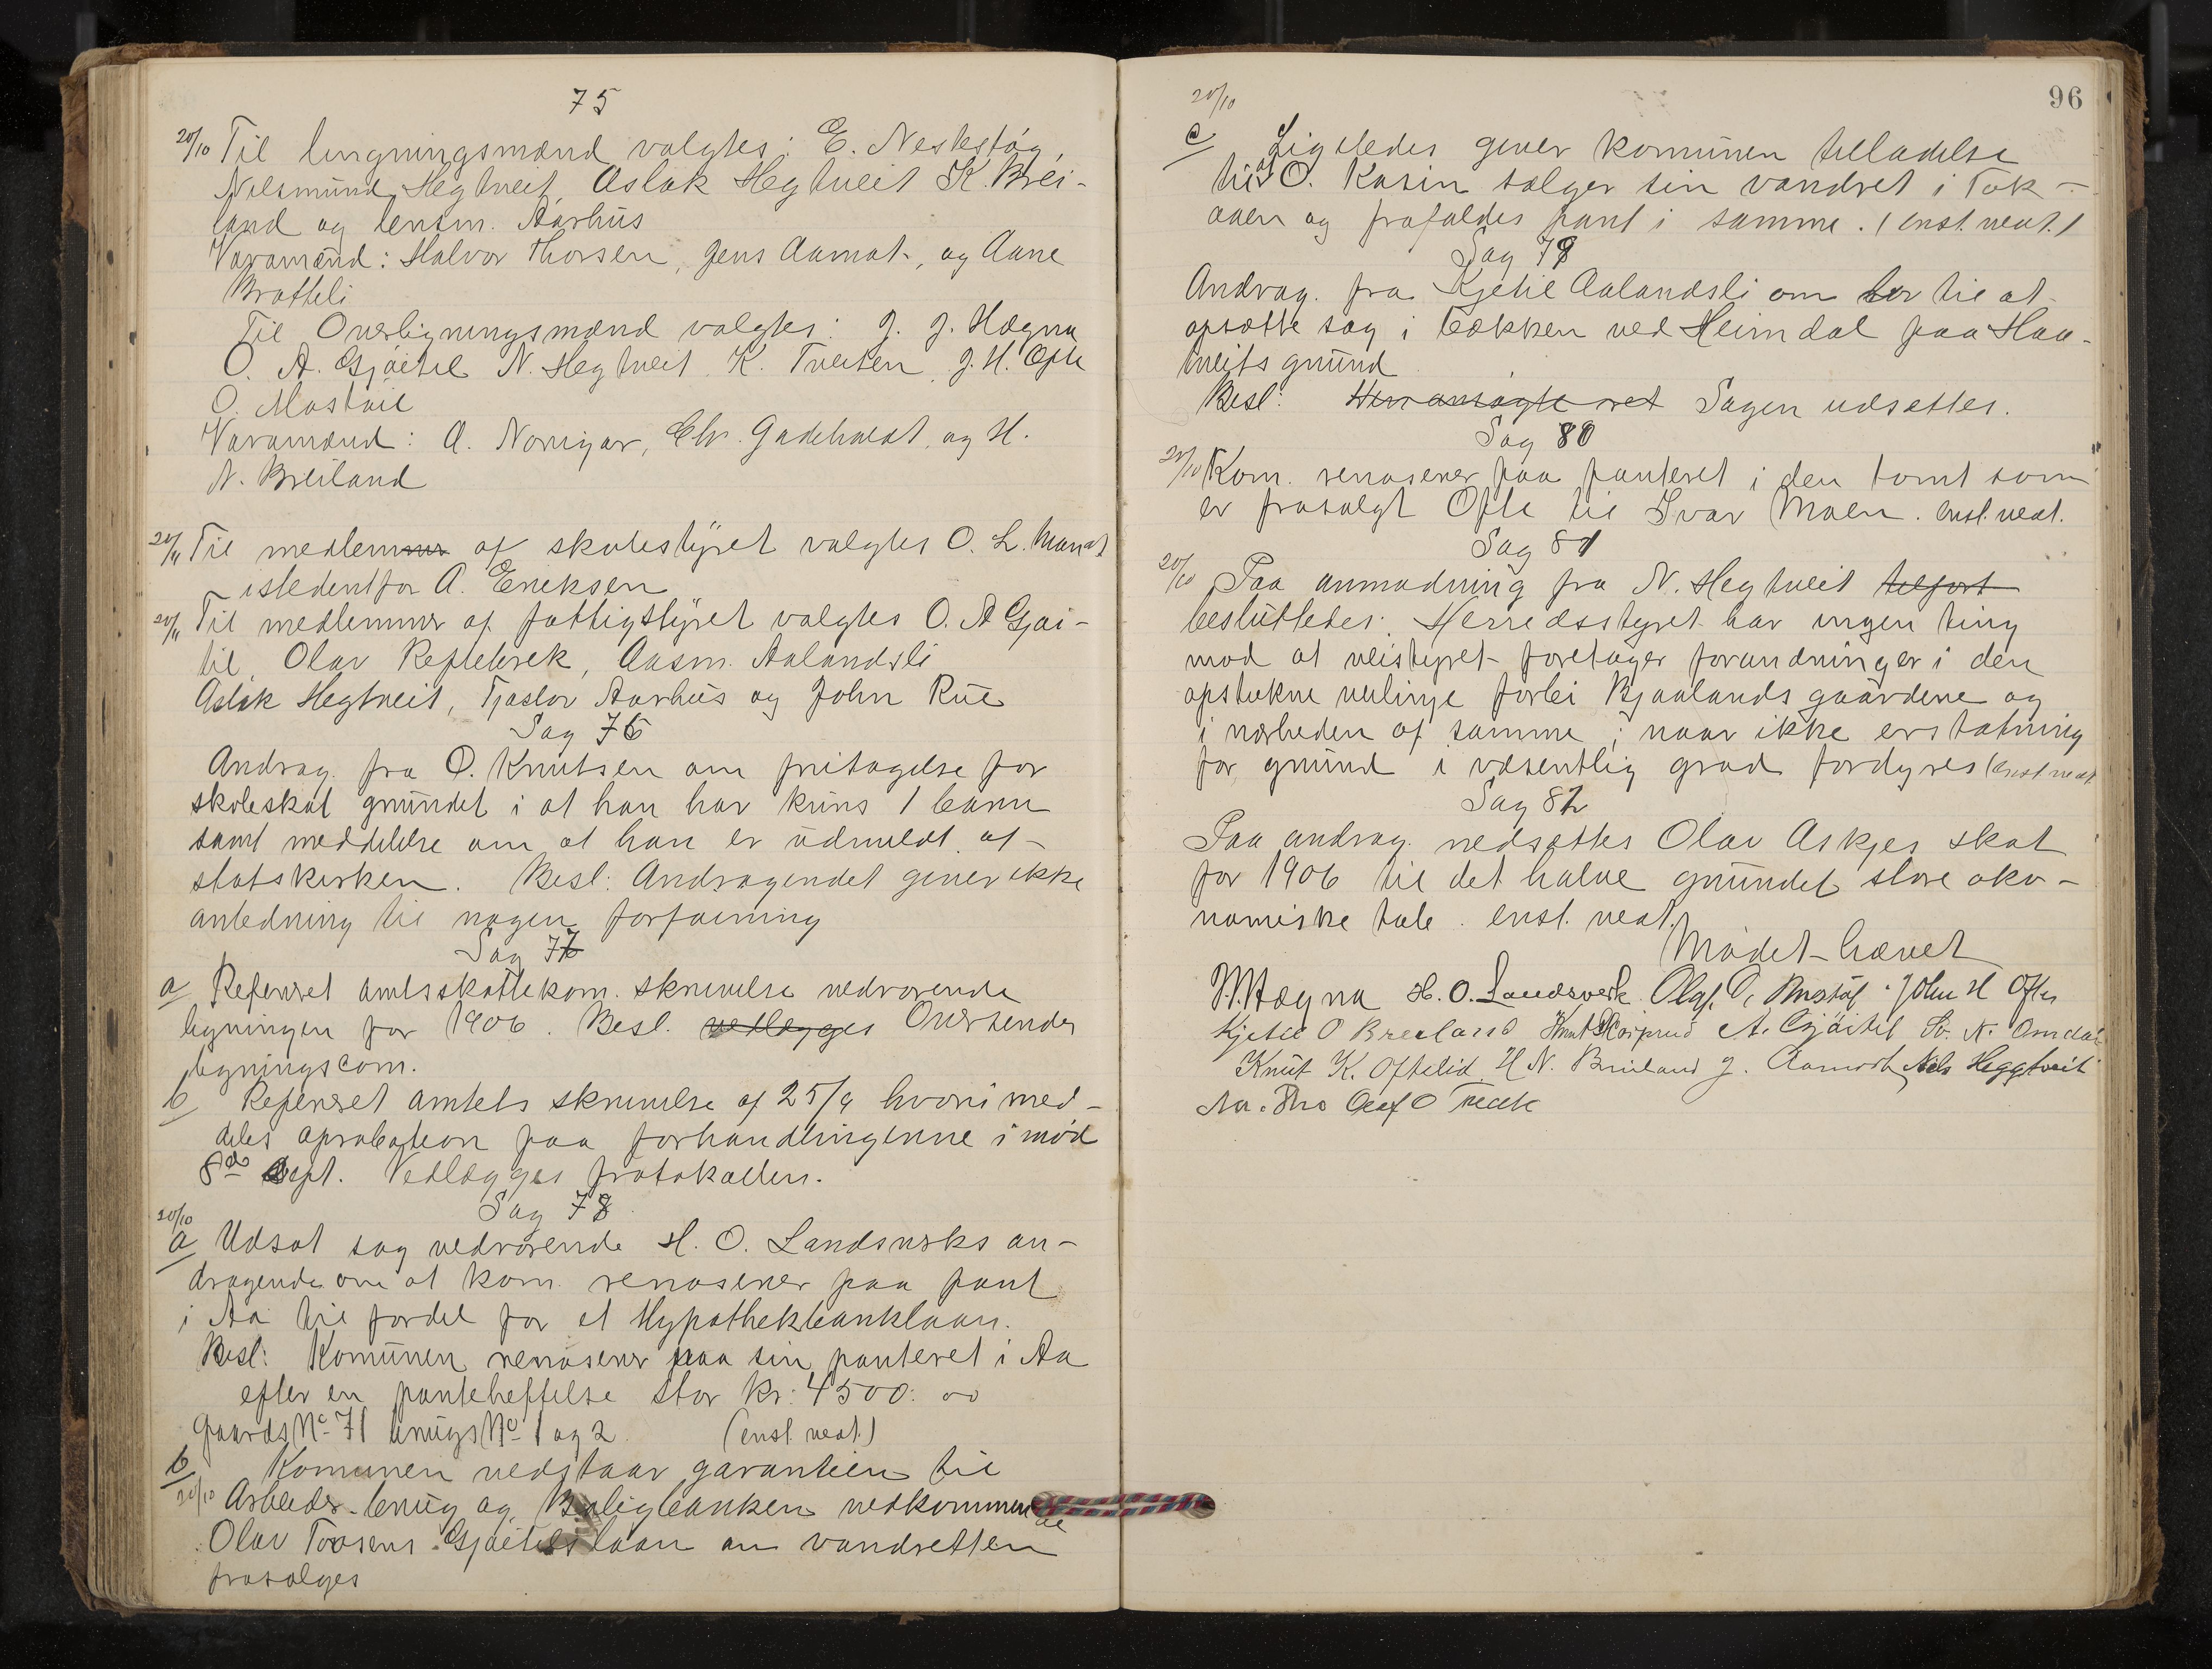 75
20/10 Til lingningsmænd valgtes: E. Neslestög,
Nilsmund Hegtveit, Aslak Hegtveit K. Brei-
land og lensm. Aarhus
Varamænd: Halvor Thorsen, Jens Aamot, og Aane
Bratteli
Til Overligningsmænd valgtes: J. J. Hægna
O. A. Gjøitil N. Hegtveit K. Tveiten, J. H. Ofte
O. Mostøil
Varamænd: A. Norigar, Chr. Gadeholdt, og H.
N. Breiland
20/11 Til medlemmer af skolestyret valgtes O. L.
istedentfor A. Eriksen
20/11 Til medlemmer af fattigstyret valgtes O. A Gjøi-
til, Olav Replebrek, Aasm. Aalandsli
Aslak Hegtveit, Tjøstov Aarhus og John Rue
Sag 76
Andrag. fra O. Knutsen om fritagelse for
skoleskat grundet i at han har kuns 1 barn
samt meddelelse om at han er udmeldt af
statskirken. Besl: Andragendet giver ikke
anledning til nogen forføining
Sag 77
a Referert amtsskattekom. skrivelse vedrørende
ligningen for 1906. Besl. vedlægges Oversendes
ligningscom.
b Referert amtets skrivelse af 25/9 hvori med-
deles aprobation paa forhandlingerne i mød
8de Sept. Vedlægges protokallen.
Sag 78
20/10
a Udsat sag vedrørende H. O. Landsverks an-
dragende om at kom. renoserer paa pant
i Aa til fordel for et Hypothekbanklaan.
Besl: Komunen renoserer paa sin panteret i Aa
efter en panteheftelse stor kr: 4500: 00
Gaards No 71 brugs No 1 og 2 (enst. veat.)
b Komunen vedstaar garantien til
20/10 Arbeider-brug og Boligbanken vedkommende
Olav Toosens Gjøitils laan om vandretten
frasælges
20/10
96
c Ligeledes giver komunen tilladelse
til at O. Kasin sælger sin vandret i Tok-
aaen og frafaldes pant i samme. (enst. veat.)
Sag 79
Andrag. fra Kjetil Aalandsli om lov til at
opsætte sag i bækken ved Heimdal paa Haa-
tveits grund
Besl: Den ansøgte ret Sagen udsettes.
Sag 80
20/10 Kom. renoserer paa panteret i den tomt som
er frasolgt Ofte til Ivar Moen. enst. veat.
Sag 81
20/10 Paa anmodning fra N. Hegtveit tilført
besluttedes: Herredsstyret har ingen ting
mod at veistyret foretager forandringer i den
opstukne veilinje forbi Bjaalands gaardene og
i nærheden af samme; naar ikke erstatning
for grund i væsentlig grad fordyres (enst. veat.
Sag 82
Paa andrag. nedsættes Olav Askjes skat
for 1906 til det halve grundet store øko-
nomiske tab. enst. veat.
Mødet hævet
J. J. Hægna H. O. Landsverk. Olaf. O. John H Ofte
Kjetil O Breiland Knut Skarprud A. Gjøitil Sv. N. Omdal
Knut K. Oftelid H N. Breiland J. Aamodt Nils Heggtveit
Olaf O